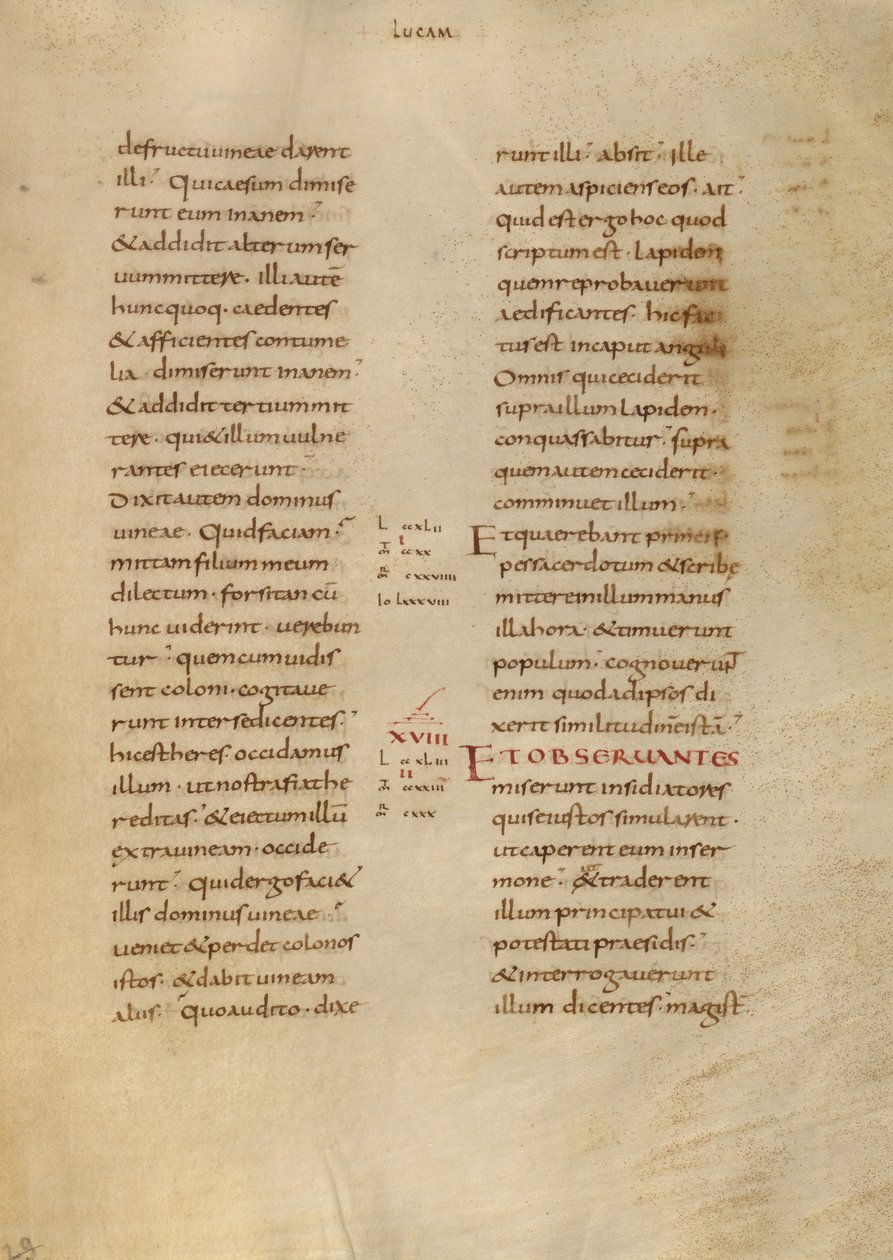 LUCAM
defructuuineae darent
illi. Quicaesum dimise
runt eum inanem.
&addidit alterum ser
uummittere. illi autē
huncquoq. caedentes
&afficientes contume
lia dimiserunt inanem.
&addidit tertium mit
tere. qui&illum uulne
rantes eiecerunt.
Dixit autem dominus
uineae. Quid faciam.
mittam filium meum
dilectum. forsitan cū
hunc uiderint. uerebun
tur. quem cum uidis
sent coloni. cogitaue
runt intersedicentes.
hicestheres. occidamus
illum. utnostrafiathe
reditas. &eiectum illū
extrauineam. occide
runt. Quidergofaci&
illis dominus uineae.
ueniet&perdet colonos
istos. &dabit uineam
aliis. Quoaudito. dixe
L ccxLii
i
ccxx
cxxviiii
Io lxxxviii
XVIII
L ccxLiii
ii
ccxxiii
cxxx
runt illi. absit. Ille
autem aspicienseos. ait.
quid est ergo hoc quod
scriptum est. Lapidem
quem reprobauerunt
aedificantes. hicfac
tusest incaput anguli
Omnis qui ceciderit
supraillum Lapidem.
conquassabitur. supra
quem autem ceciderit.
comminuet illum.
Etquaerebant princi
pessacerdotum &scribę
mittereinillum manus
illahora. &timuerunt
populum. cognouerunt
enim quod adipsos di
xerit similitudinēistā.
ETOBSERUANTES
miserunt insidiatores
quiseiustos simularent.
ut caperent eum inser
mone. &traderent
illum principatui &
potestati praesidis.
&interrogauerunt
illum dicentes. magist